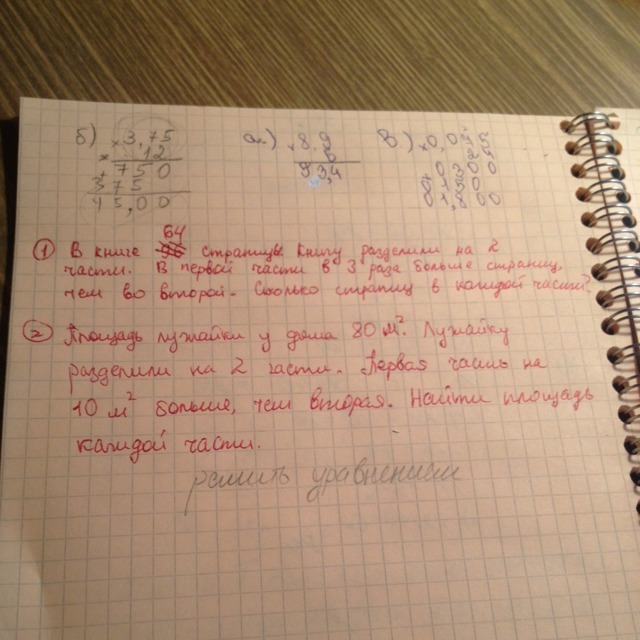 б) × 3,75 а) × 8,9 в) × 0,0
12 6
+ 750 53,4
375
45,00
① В книге 64 страницы. Книгу разделили на 2
части. В первой части в 3 раза больше страниц,
чем во второй. Сколько страниц в каждой части?
② Площадь лужайки у дома 80 м². Лужайку
разделили на 2 части. Первая часть на
10 м² больше, чем вторая. Найти площадь
каждой части.
решить уравнением